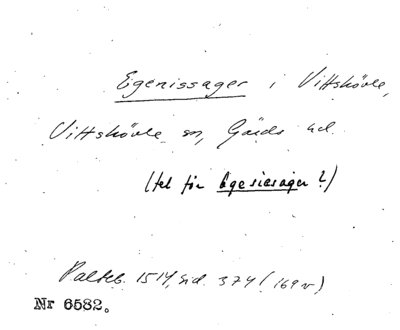 Egenissager i Vittskövle,
Vittskövle sn, Gärds hd.
(fel för Egesiesager?)
Palteb. 1514, sid. 374 (169 v)
Nr 6582.